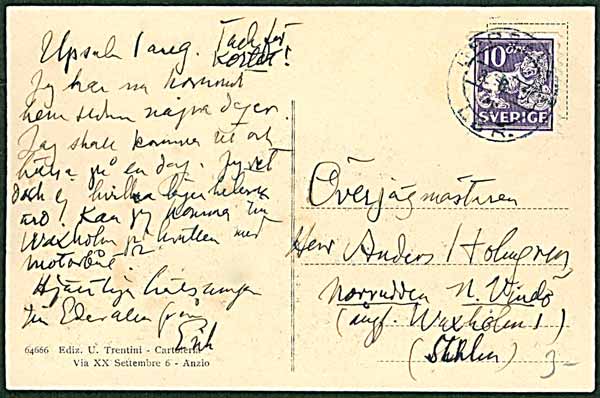 Upsala 1 aug. Tack för
kortet!
Jag har nu kommit
hem sedan några dagar.
Jag skall komma ut och
hälsa på en dag. Jag vet
dock ej hvilka
Kan jag komma till
Waxholm på hvilken med
motorbåt
Hjärtliga hälsningar
till Eder alla från
Erik
64666 Ediz. U. Trentini - Cartoleria
Via XX Settembre 6 - Anzio
10 ÖRE
SVERIGE
Överjägmästaren
Herr Anders Holmgren
Norrudden N. Vindö
(ångf. Waxholm 1)
(Sthlm)
3-